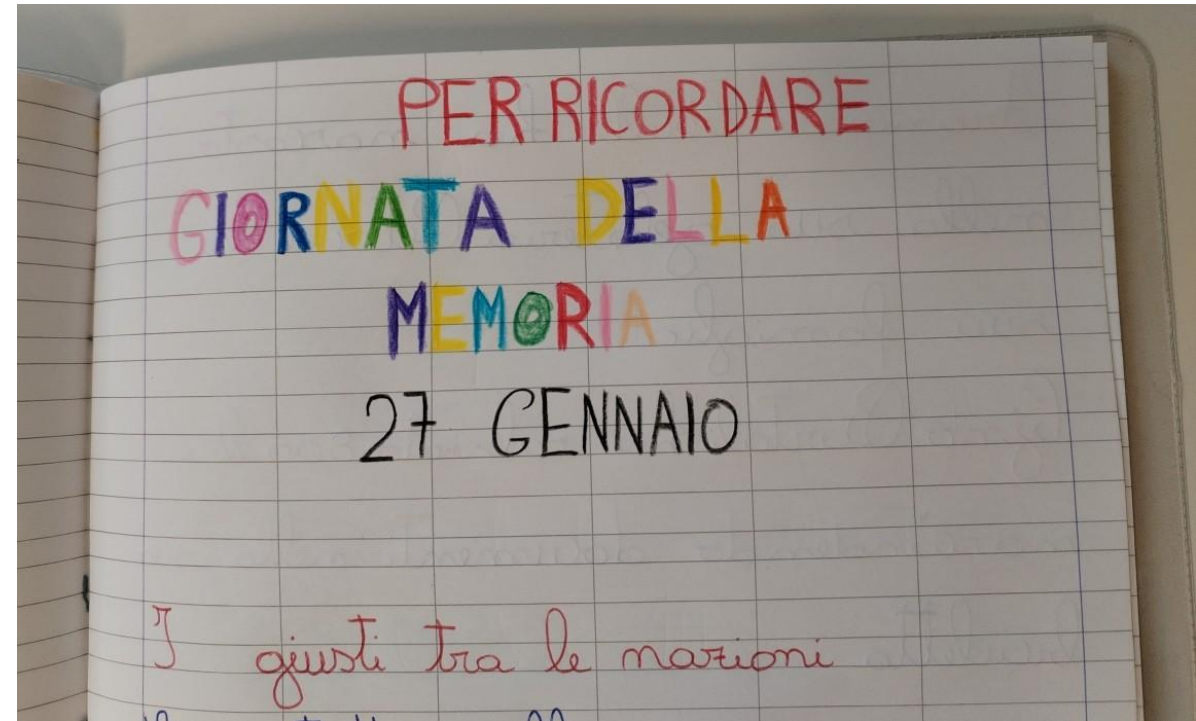 PER RICORDARE
GIORNATA DELLA
MEMORIA
27 GENNAIO
I giusti tra le nazioni